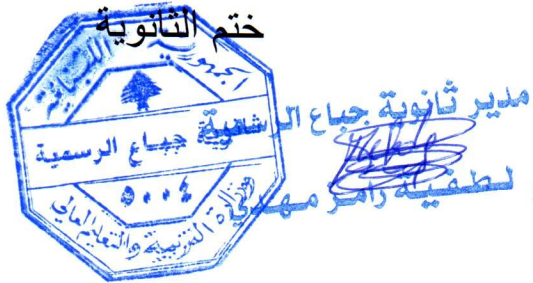 ختم الثانوية
الجمهورية اللبنانية
ثانوية جباع الرسمية
٥٠٠٤
وزارة التربية والتعليم العالي
مدير ثانوية جباع الرسمية
لطفية رامز مهدي